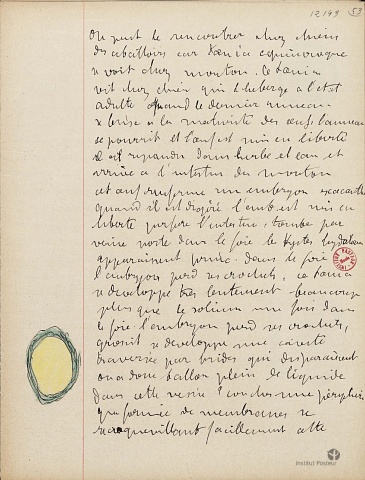 12149 53
on peut le rencontrer chez chiens
des abattoirs car tænia echinocoque
se voit chez mouton. Ce tænia
vit chez chien qui l'héberge à l'état
adulte quand le dernier anneau
se brise à la maturité des œufs l'anneau
se pourrit et l'œuf est mis en liberté
il est répandu dans herbe et eau et
arrive à l'intestin du mouton
cet œuf renferme un embryon
quand il est digéré l'emb est mis en
liberté perfore l'intestin, tombe par
veine porte dans le foie le kyste hydatique
apparaissent dans le foie
l'embryon perd ses crochets, ce tænia
se développe très lentement beaucoup
plus que le solium une fois dans
le foie l'embryon perd ses crochets,
grossit se développe une cavité
traversée par brides qui disparaissent
on a donc ballon plein de liquide
dans cette vésicule 2 couches une périphérique
formée de membranes se
recroquevillant facilement cette
Institut Pasteur